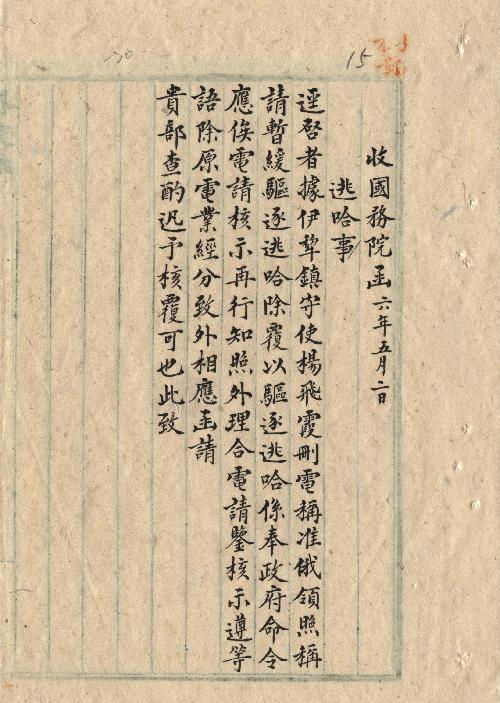 15
收國務院函六年五月二日
逃哈事
逕啓者據伊犂鎮守使楊飛霞刪電稱准俄領照稱
請暫緩驅逐逃哈除覆以驅逐逃哈係奉政府命令
應俟電請核示再行知照外理合電請鑒核示遵等
語除原電業經分致外相應函請
貴部查酌迅予核覆可也此致